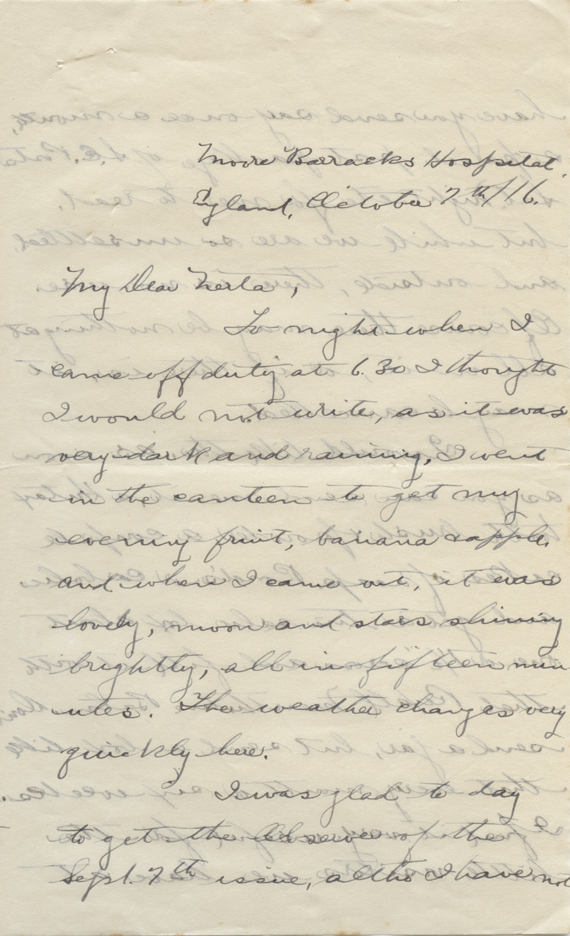 Moore Barracks Hospital,
England, October 7th/16.
My Dear Nerta,
To night when I
came off duty at 6.30 I thought
I would not write, as it was
very dark and raining, I went
in the canteen to get my
evening fruit, banana & apple,
and when I came out, it was
lovely, moon and stars shining
brightly, all in fifteen min
utes. The weather changes very
quickly here.
I was glad to day
to get the Observer of the
Sept. 7th issue, altho I have not